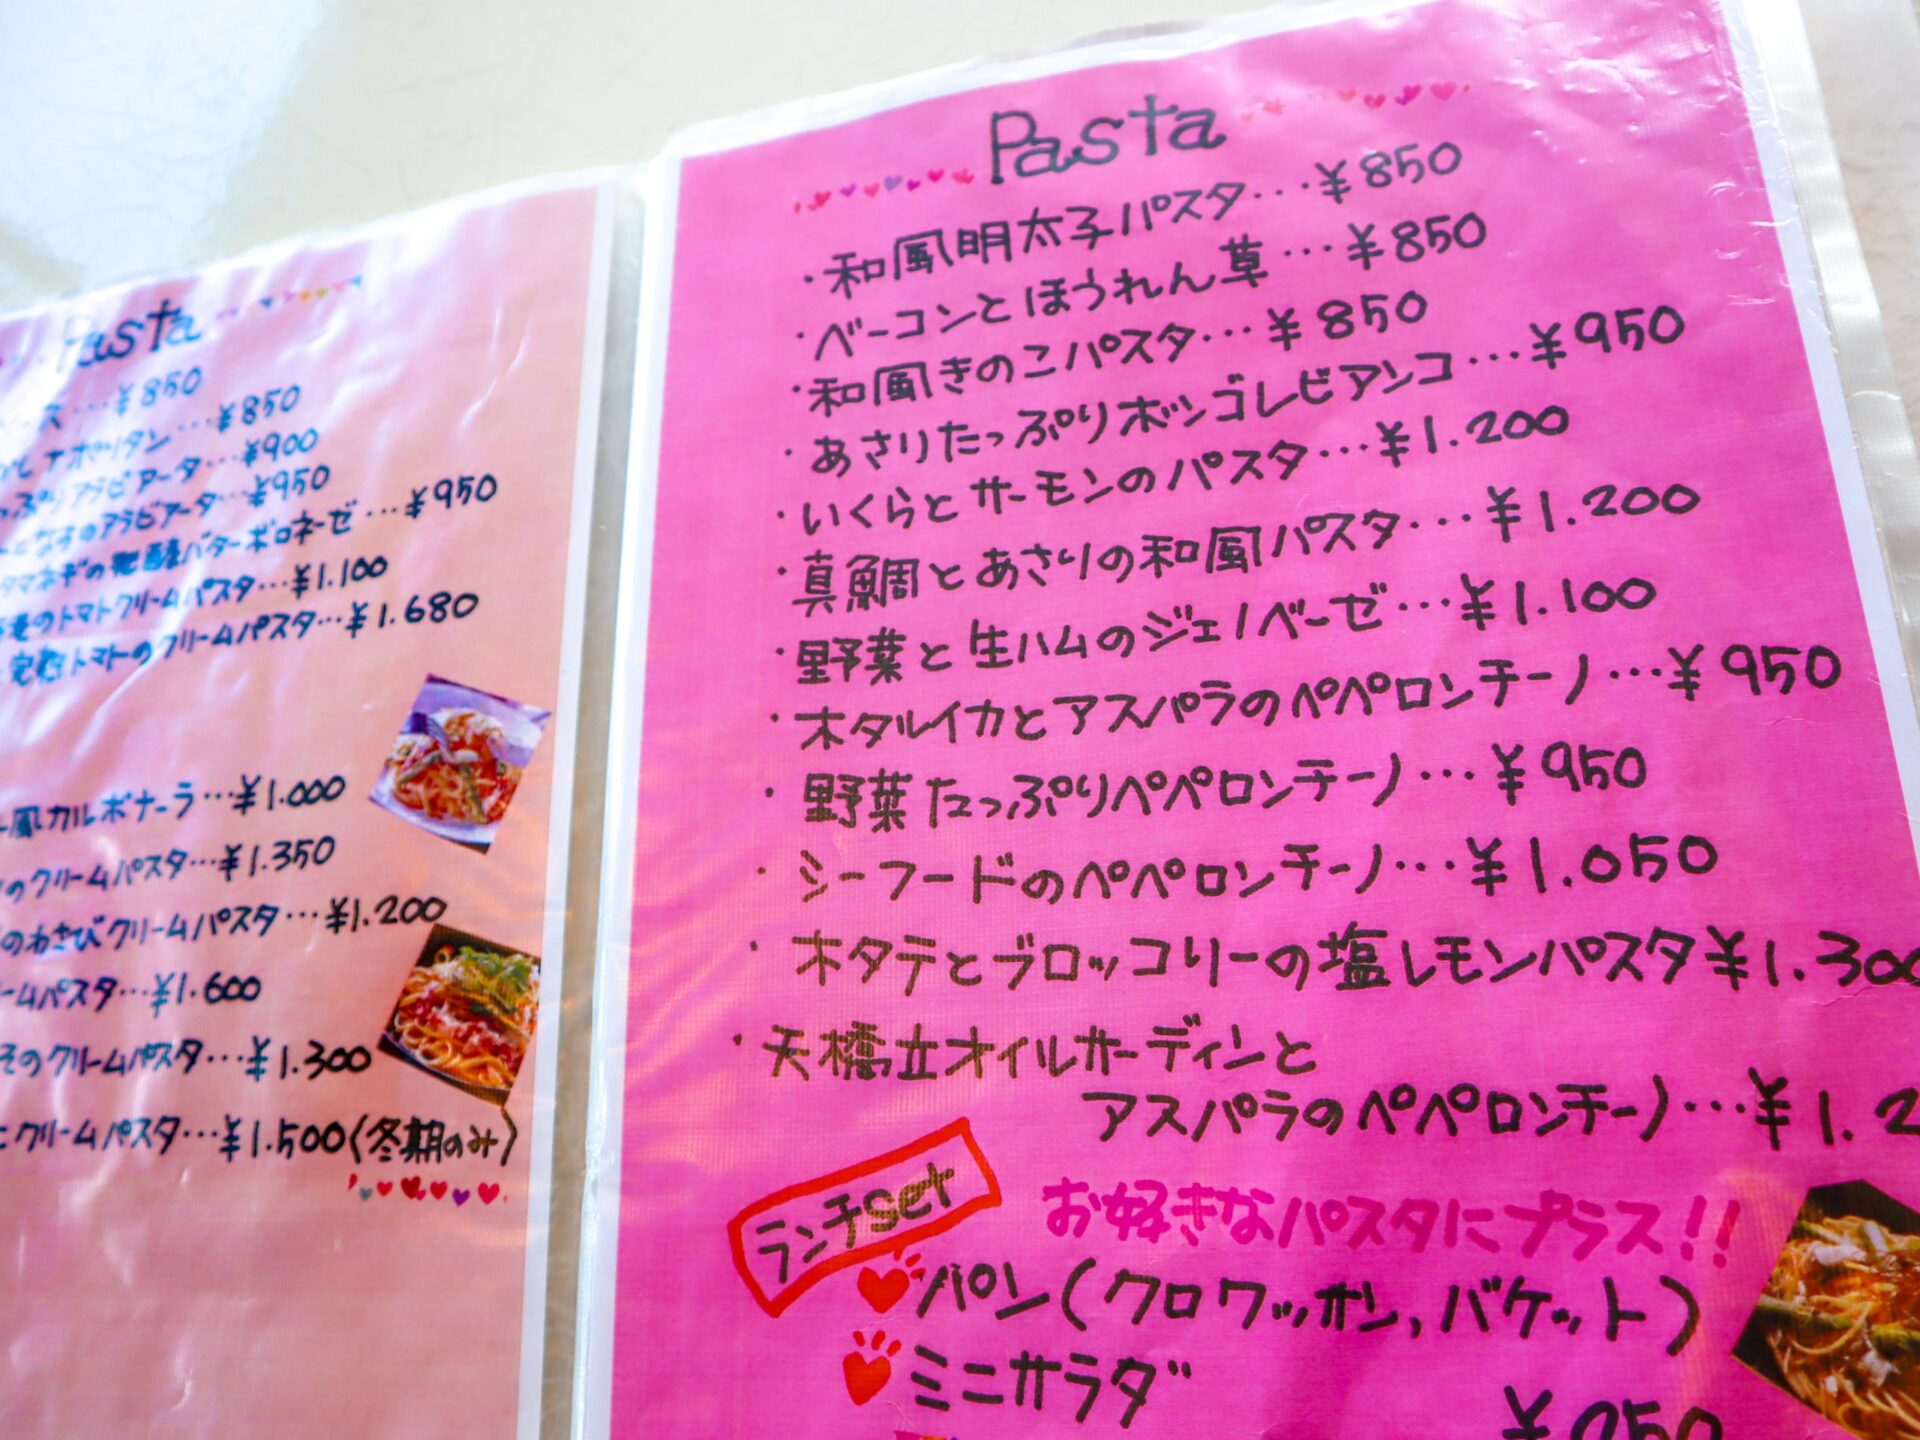 Pasta
…¥850
ナポリタン…¥850
っぷりアラビアータ…¥900
となすのアラビアータ…¥950
タマネギの発酵バターボロネーゼ…¥950
のトマトクリームパスタ…¥1.100
完熟トマトのクリームパスタ…¥1.680
風カルボナーラ…¥1.000
のクリームパスタ…¥1.350
のわさびクリームパスタ…¥1.200
ームパスタ…¥1.600
そのクリームパスタ…¥1.300
クリームパスタ…¥1.500〈冬期のみ〉
Pasta
・和風明太子パスタ…¥850
・ベーコンとほうれん草…¥850
・和風きのこパスタ…¥850
・あさりたっぷりボンゴレビアンコ…¥950
・いくらとサーモンのパスタ…¥1.200
・真鯛とあさりの和風パスタ…¥1.200
・野菜と生ハムのジェノベーゼ…¥1.100
・ホタルイカとアスパラのペペロンチーノ…¥950
・野菜たっぷりペペロンチーノ…¥950
・シーフードのペペロンチーノ…¥1.050
・ホタテとブロッコリーの塩レモンパスタ¥1.300
・天橋立オイルサーディンと
アスパラのペペロンチーノ…¥1.2
ランチset
お好きなパスタにプラス!!
パン(クロワッサン,バケット)
ミニサラダ